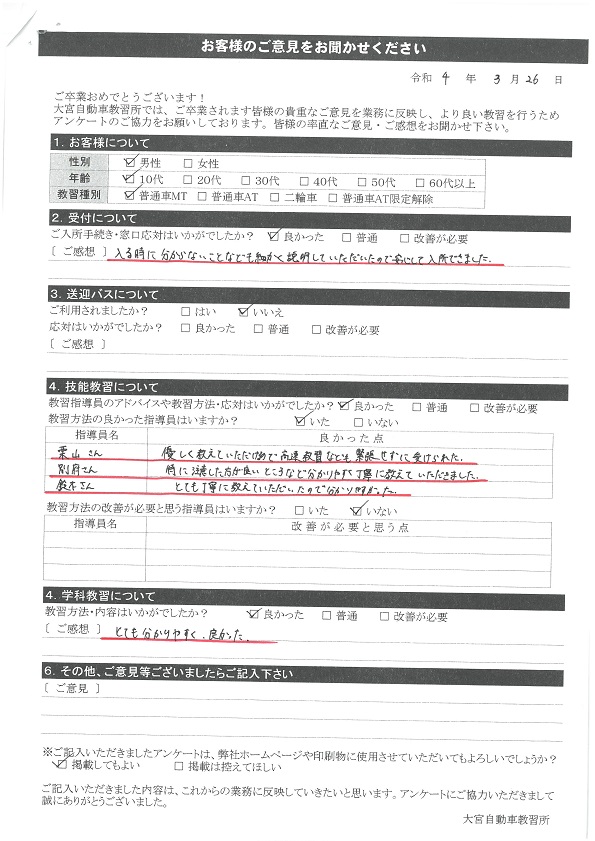 お客様のご意見をお聞かせください
令和 4 年 3 月 26 日
ご卒業おめでとうございます！
大宮自動車教習所では、ご卒業されます皆様の貴重なご意見を業務に反映し、より良い教習を行うため
アンケートのご協力をお願いしております。皆様の率直なご意見・ご感想をお聞かせ下さい。
1. お客様について
性別 ☑ 男性 □ 女性
年齢 ☑ 10代 □ 20代 □ 30代 □ 40代 □ 50代 □ 60代以上
教習種別 ☑ 普通車MT □ 普通車AT □ 二輪車 □ 普通車AT限定解除
2. 受付について
ご入所手続き・窓口応対はいかがでしたか？ ☑ 良かった □ 普通 □ 改善が必要
［ ご感想 ］ 入る時に分からないことなども細かく説明していただいたので安心して入所できました。
3. 送迎バスについて
ご利用されましたか？ □ はい ☑ いいえ
応対はいかがでしたか？ □ 良かった □ 普通 □ 改善が必要
［ ご感想 ］
4. 技能教習について
教習指導員のアドバイスや教習方法・応対はいかがでしたか？ ☑ 良かった □ 普通 □ 改善が必要
教習方法の良かった指導員はいますか？ ☑ いた □ いない
指導員名 良かった点
栗山さん 優しく教えていただけたので高速教習なども緊張せずに受けられた。
別府さん 特に注意した方が良いところなど分かりやすく丁寧に教えていただきました。
鈴木さん とても丁寧に教えていただいたので分かりやすかった。
教習方法の改善が必要と思う指導員はいますか？ □ いた ☑ いない
指導員名 改善が必要と思う点
4. 学科教習について
教習方法・内容はいかがでしたか？ ☑ 良かった □ 普通 □ 改善が必要
［ ご感想 ］ とても分かりやすく、良かった。
6. その他、ご意見等ございましたらご記入下さい
［ ご意見 ］
※ご記入いただきましたアンケートは、弊社ホームページや印刷物に使用させていただいてもよろしいでしょうか？
☑ 掲載してもよい □ 掲載は控えてほしい
ご記入いただきました内容は、これからの業務に反映していきたいと思います。アンケートにご協力いただきまして
誠にありがとうございました。
大宮自動車教習所